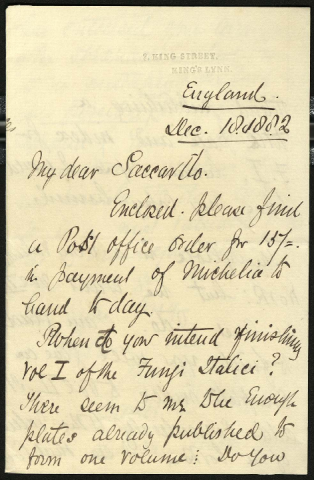 7, KING STREET,
KING'S LYNN.
England.
Dec. 18. 1882
My dear Saccardo.
Enclosed please find
a Post office order for 15/-.
in payment of Michelia to
hand to day.
When do you intend finishing
Vol I of the Fungi Italici?
There seem to me to be enough
plates already published to
form one volume: Do you